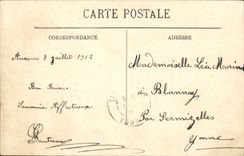 CARTE POSTALE
CORRESPONDANCE
ADRESSE
Auxerre 8 juillet 1912
Bons Baisers
Souvenir Affectueux
Mademoiselle Léa Morin
à Blannay
Par Sermizelles
Yonne